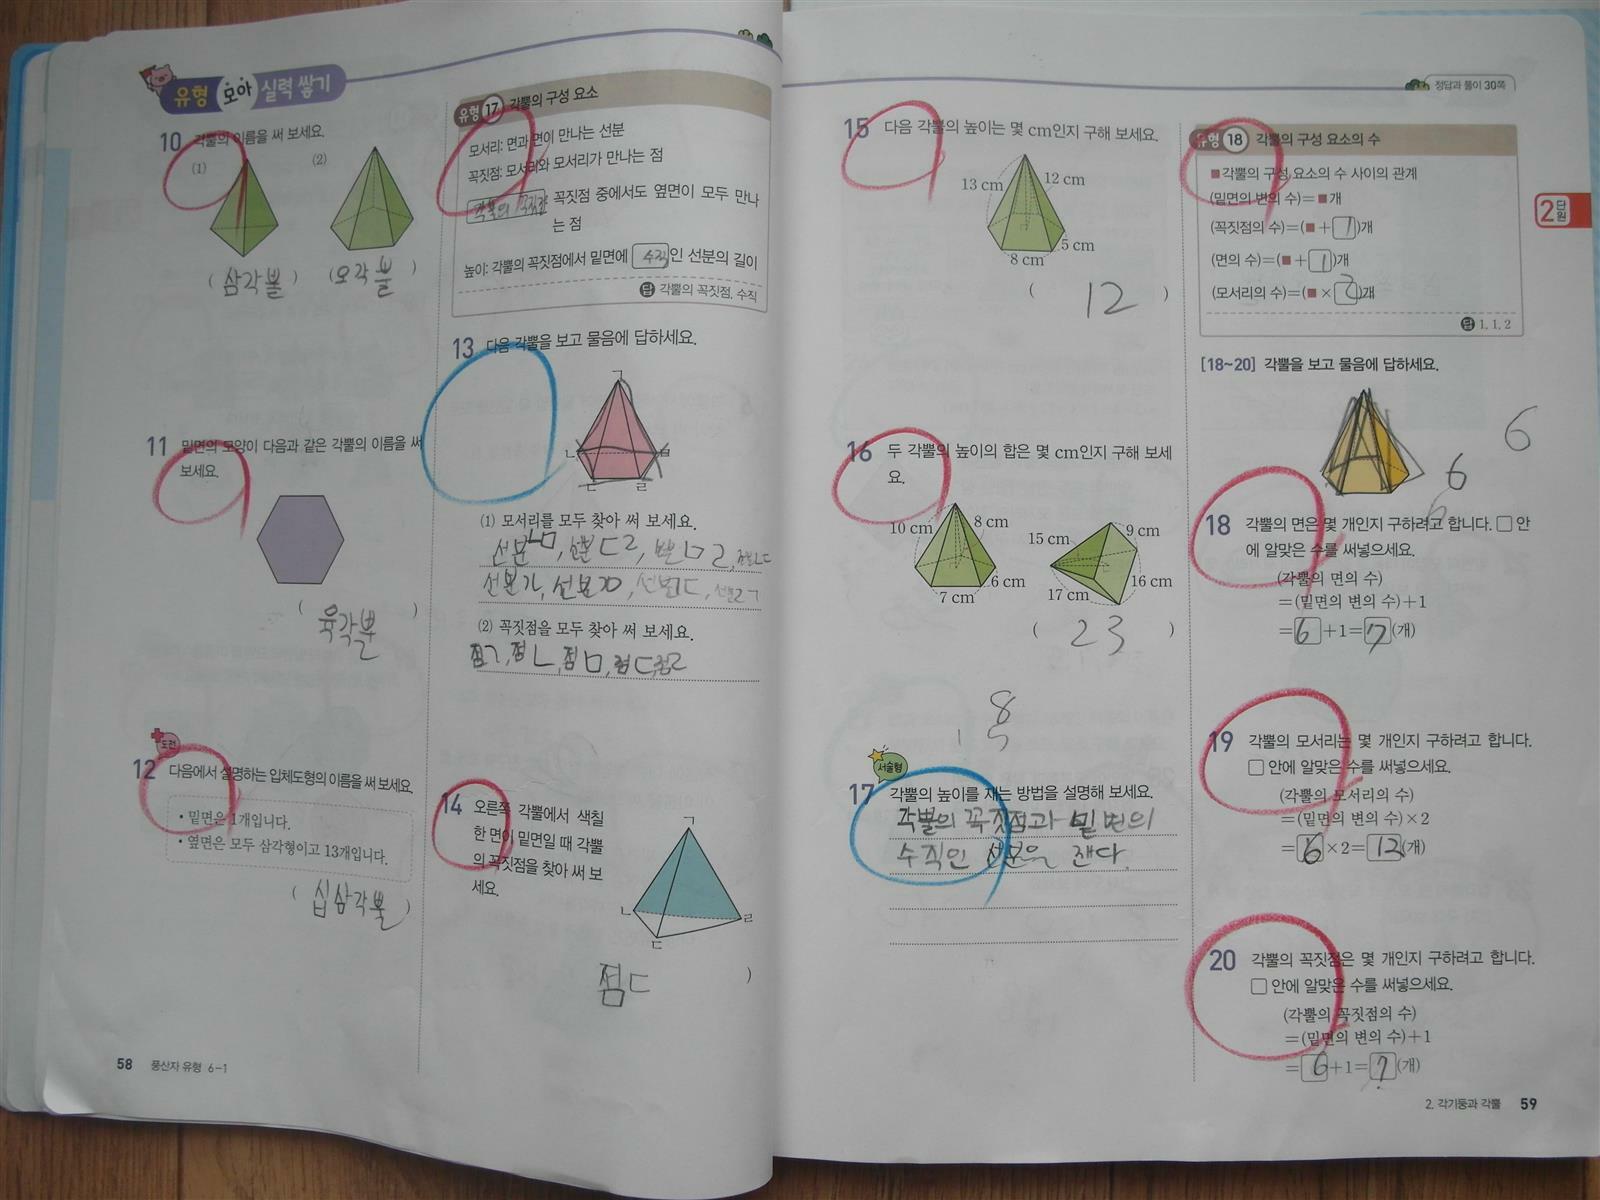 유형 모아 실력 쌓기
10 각뿔의 이름을 써 보세요.
(1)
(2)
( 삼각뿔 )
( 오각뿔 )
11 밑면의 모양이 다음과 같은 각뿔의 이름을 써
보세요.
( 육각뿔 )
도전
12 다음에서 설명하는 입체도형의 이름을 써 보세요.
• 밑면은 1개입니다.
• 옆면은 모두 삼각형이고 13개입니다.
( 십삼각뿔 )
58 풍산자 유형 6-1
유형 17 각뿔의 구성 요소
모서리: 면과 면이 만나는 선분
꼭짓점: 모서리와 모서리가 만나는 점
각뿔의 꼭짓점 꼭짓점 중에서도 옆면이 모두 만나
는 점
높이: 각뿔의 꼭짓점에서 밑면에 수직인 선분의 길이
답 각뿔의 꼭짓점, 수직
13 다음 각뿔을 보고 물음에 답하세요.
ㄱ
ㄴ
ㅁ
ㄷ
ㄹ
(1) 모서리를 모두 찾아 써 보세요.
선분ㄴㅁ, 선분ㄷㄹ, ㅁㄹ,
선분 선분 선분 선분ㄹㄱ
(2) 꼭짓점을 모두 찾아 써 보세요.
점ㄱ, 점ㄴ, 점ㅁ, 점ㄷ, 점ㄹ
14 오른쪽 각뿔에서 색칠
한 면이 밑면일 때 각뿔
의 꼭짓점을 찾아 써 보
세요.
ㄱ
ㄴ
ㄹ
ㄷ
점ㄷ )
정답과 풀이 30쪽
15 다음 각뿔의 높이는 몇 cm인지 구해 보세요.
13 cm
12 cm
5 cm
8 cm
( 12 )
16 두 각뿔의 높이의 합은 몇 cm인지 구해 보세
요.
10 cm
8 cm
6 cm
7 cm
15 cm
9 cm
16 cm
17 cm
( 23 )
8
서술형
17 각뿔의 높이를 재는 방법을 설명해 보세요.
각뿔의 꼭짓점과 밑면의
수직인 선분을 잰다.
유형 18 각뿔의 구성 요소의 수
■각뿔의 구성 요소의 수 사이의 관계
(밑면의 변의 수)=■개
(꼭짓점의 수)=(■+1)개
(면의 수)=(■+1)개
(모서리의 수)=(■×2)개
답 1, 1, 2
2단원
[18~20] 각뿔을 보고 물음에 답하세요.
6
6
6
18 각뿔의 면은 몇 개인지 구하려고 합니다. □ 안
에 알맞은 수를 써넣으세요.
(각뿔의 면의 수)
=(밑면의 변의 수)+1
=6+1=7(개)
19 각뿔의 모서리는 몇 개인지 구하려고 합니다.
□ 안에 알맞은 수를 써넣으세요.
(각뿔의 모서리의 수)
=(밑면의 변의 수)×2
=6×2=12(개)
20 각뿔의 꼭짓점은 몇 개인지 구하려고 합니다.
□ 안에 알맞은 수를 써넣으세요.
(각뿔의 꼭짓점의 수)
=(밑면의 변의 수)+1
=6+1=7(개)
2. 각기둥과 각뿔 59